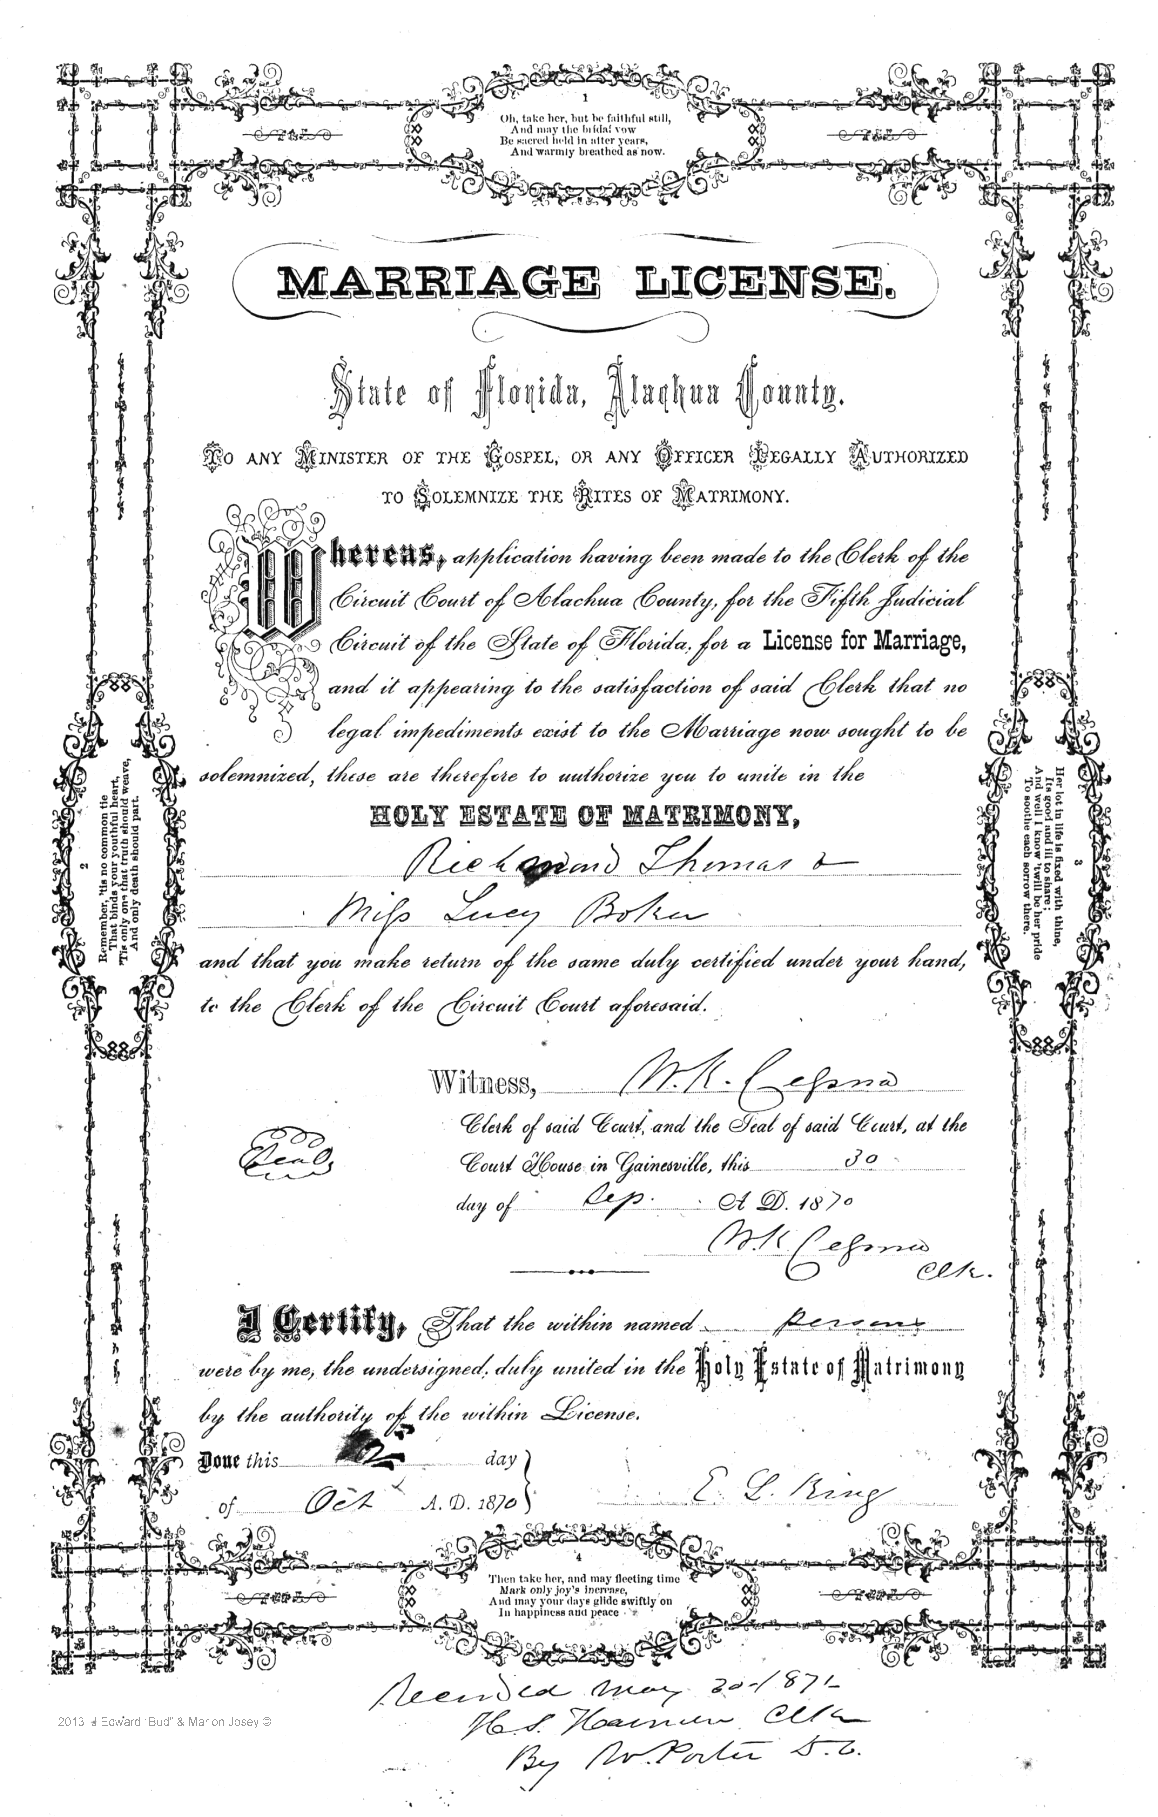 1
Oh, take her, but be faithful still,
And may the bridal vow
Be sacred held in after years,
And warmly breathed as now.
MARRIAGE LICENSE.
State of Florida, Alachua County.
TO ANY MINISTER OF THE GOSPEL, OR ANY OFFICER LEGALLY AUTHORIZED
TO SOLEMNIZE THE RITES OF MATRIMONY.
Whereas, application having been made to the Clerk of the
Circuit Court of Alachua County, for the Fifth Judicial
Circuit of the State of Florida, for a License for Marriage,
and it appearing to the satisfaction of said Clerk that no
legal impediments exist to the Marriage now sought to be
solemnized, these are therefore to authorize you to unite in the
HOLY ESTATE OF MATRIMONY,
Richmond Thomas &
Miss Lucy Boker
and that you make return of the same duly certified under your hand,
to the Clerk of the Circuit Court aforesaid.
2
Remember, 'tis no common tie
That binds your youthful heart,
'Tis only one that truth should weave,
And only death should part.
3
Her lot in life is fixed with thine,
Its good and ill to share;
And well I know 'twill be her pride
To soothe each sorrow there.
Witness, W. K. Cessna
Clerk of said Court, and the Seal of said Court, at the
Seal
Court House in Gainesville, this 30
day of Sep. A. D. 1870
W. K. Cessna
Clk.
I Certify, That the within named persons
were by me, the undersigned, duly united in the Holy Estate of Matrimony
by the authority of the within License.
Done this 2 day
of Oct A. D. 1870
E. L. King
4
Then take her, and may fleeting time
Mark only joy's increase,
And may your days glide swiftly on
In happiness and peace
Recorded May 20 1871
H. S. Clk
By W. Porter D. C.
2013 Edward "Bud" & Marion Josey ©